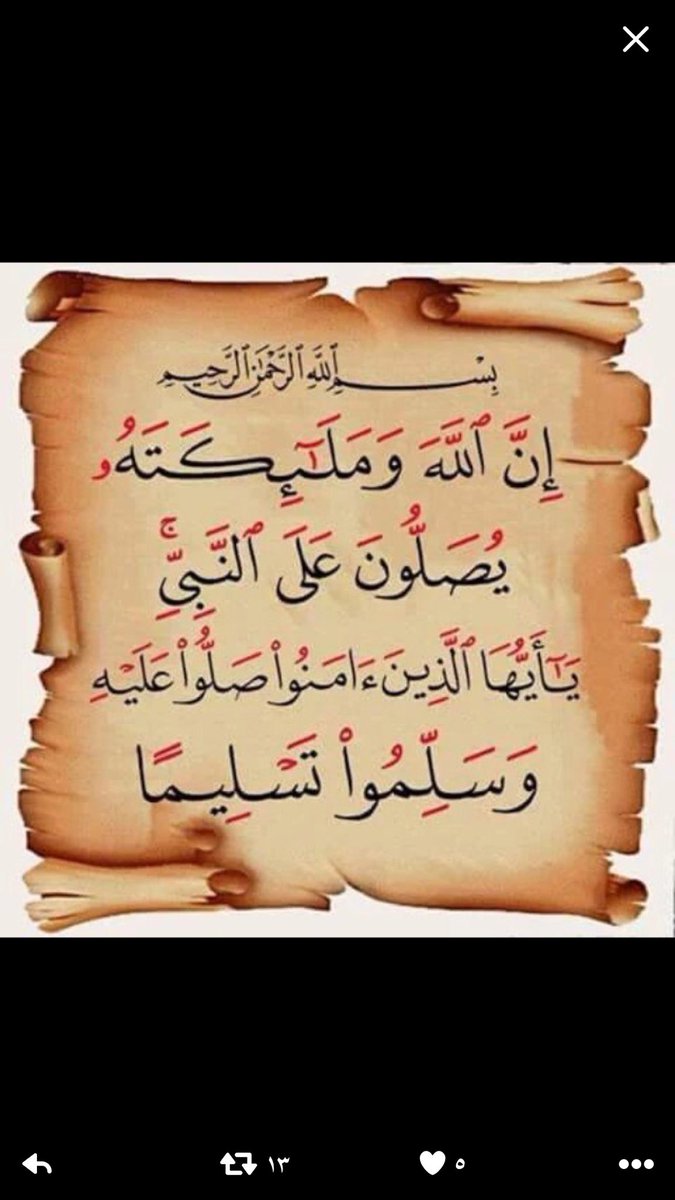 بِسْمِ ٱللَّهِ ٱلرَّحْمَٰنِ ٱلرَّحِيمِ
إِنَّ ٱللَّهَ وَمَلَٰٓئِكَتَهُۥ
يُصَلُّونَ عَلَى ٱلنَّبِىِّۚ
يَٰٓأَيُّهَا ٱلَّذِينَ ءَامَنُوا۟ صَلُّوا۟ عَلَيْهِ
وَسَلِّمُوا۟ تَسْلِيمًا
١٣ ٥